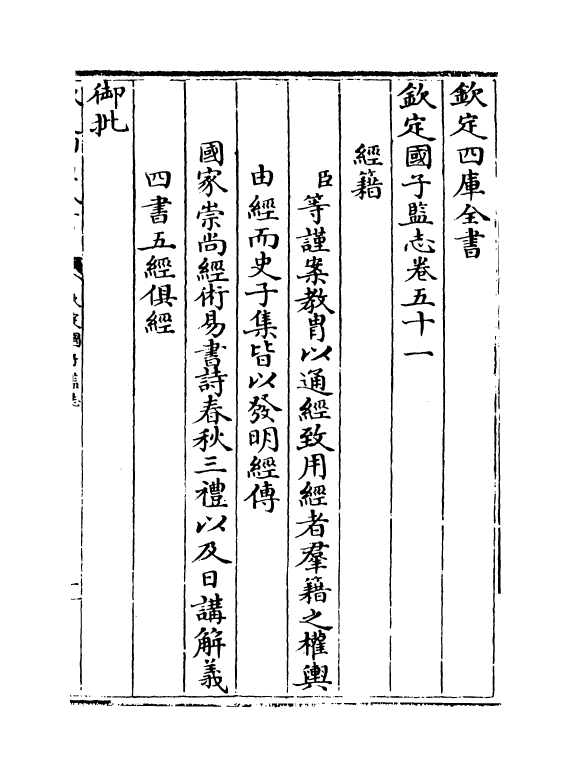 欽定四庫全書
欽定國子監志卷五十一
經籍
臣等謹案教胄以通經致用經者羣籍之權輿
由經而史子集皆以發明經傳
國家崇尚經術易書詩春秋三禮以及日講解義
四書五經俱經
御批